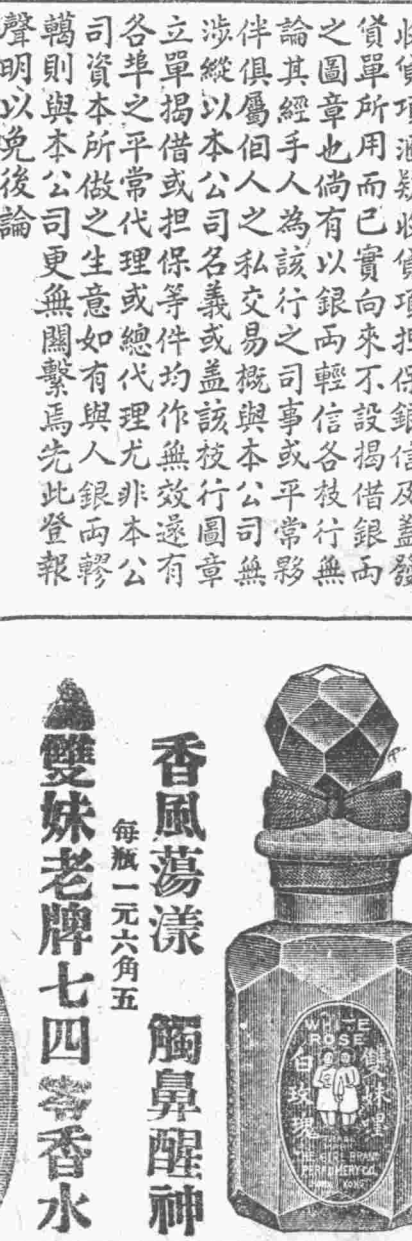 收貨項滙疑收貨項担保銀信及蓋發
貨單所用而已實向來不設揭借銀両
之圖章也倘有以銀両輕信各枝行無
論其經手人為該行之司事或平常夥
伴俱屬佪人之私交易概與本公司無
涉縱以本公司名義或盖該枝行圖章
立單揭借或担保等件均作無效還有
各埠之平常代理或總代理尤非本公
司資本所做之生意如有與人銀両轇
轕則與本公司更無關繫焉先此登報
聲明以免後論
香風蕩漾 觸鼻醒神
每瓶一元六角五
雙妹老牌七四零香水
WHITE
ROSE
雙妹嘜
白玫瑰
THE GIRL BRAND
PERFUMERY CO.
HONG KONG